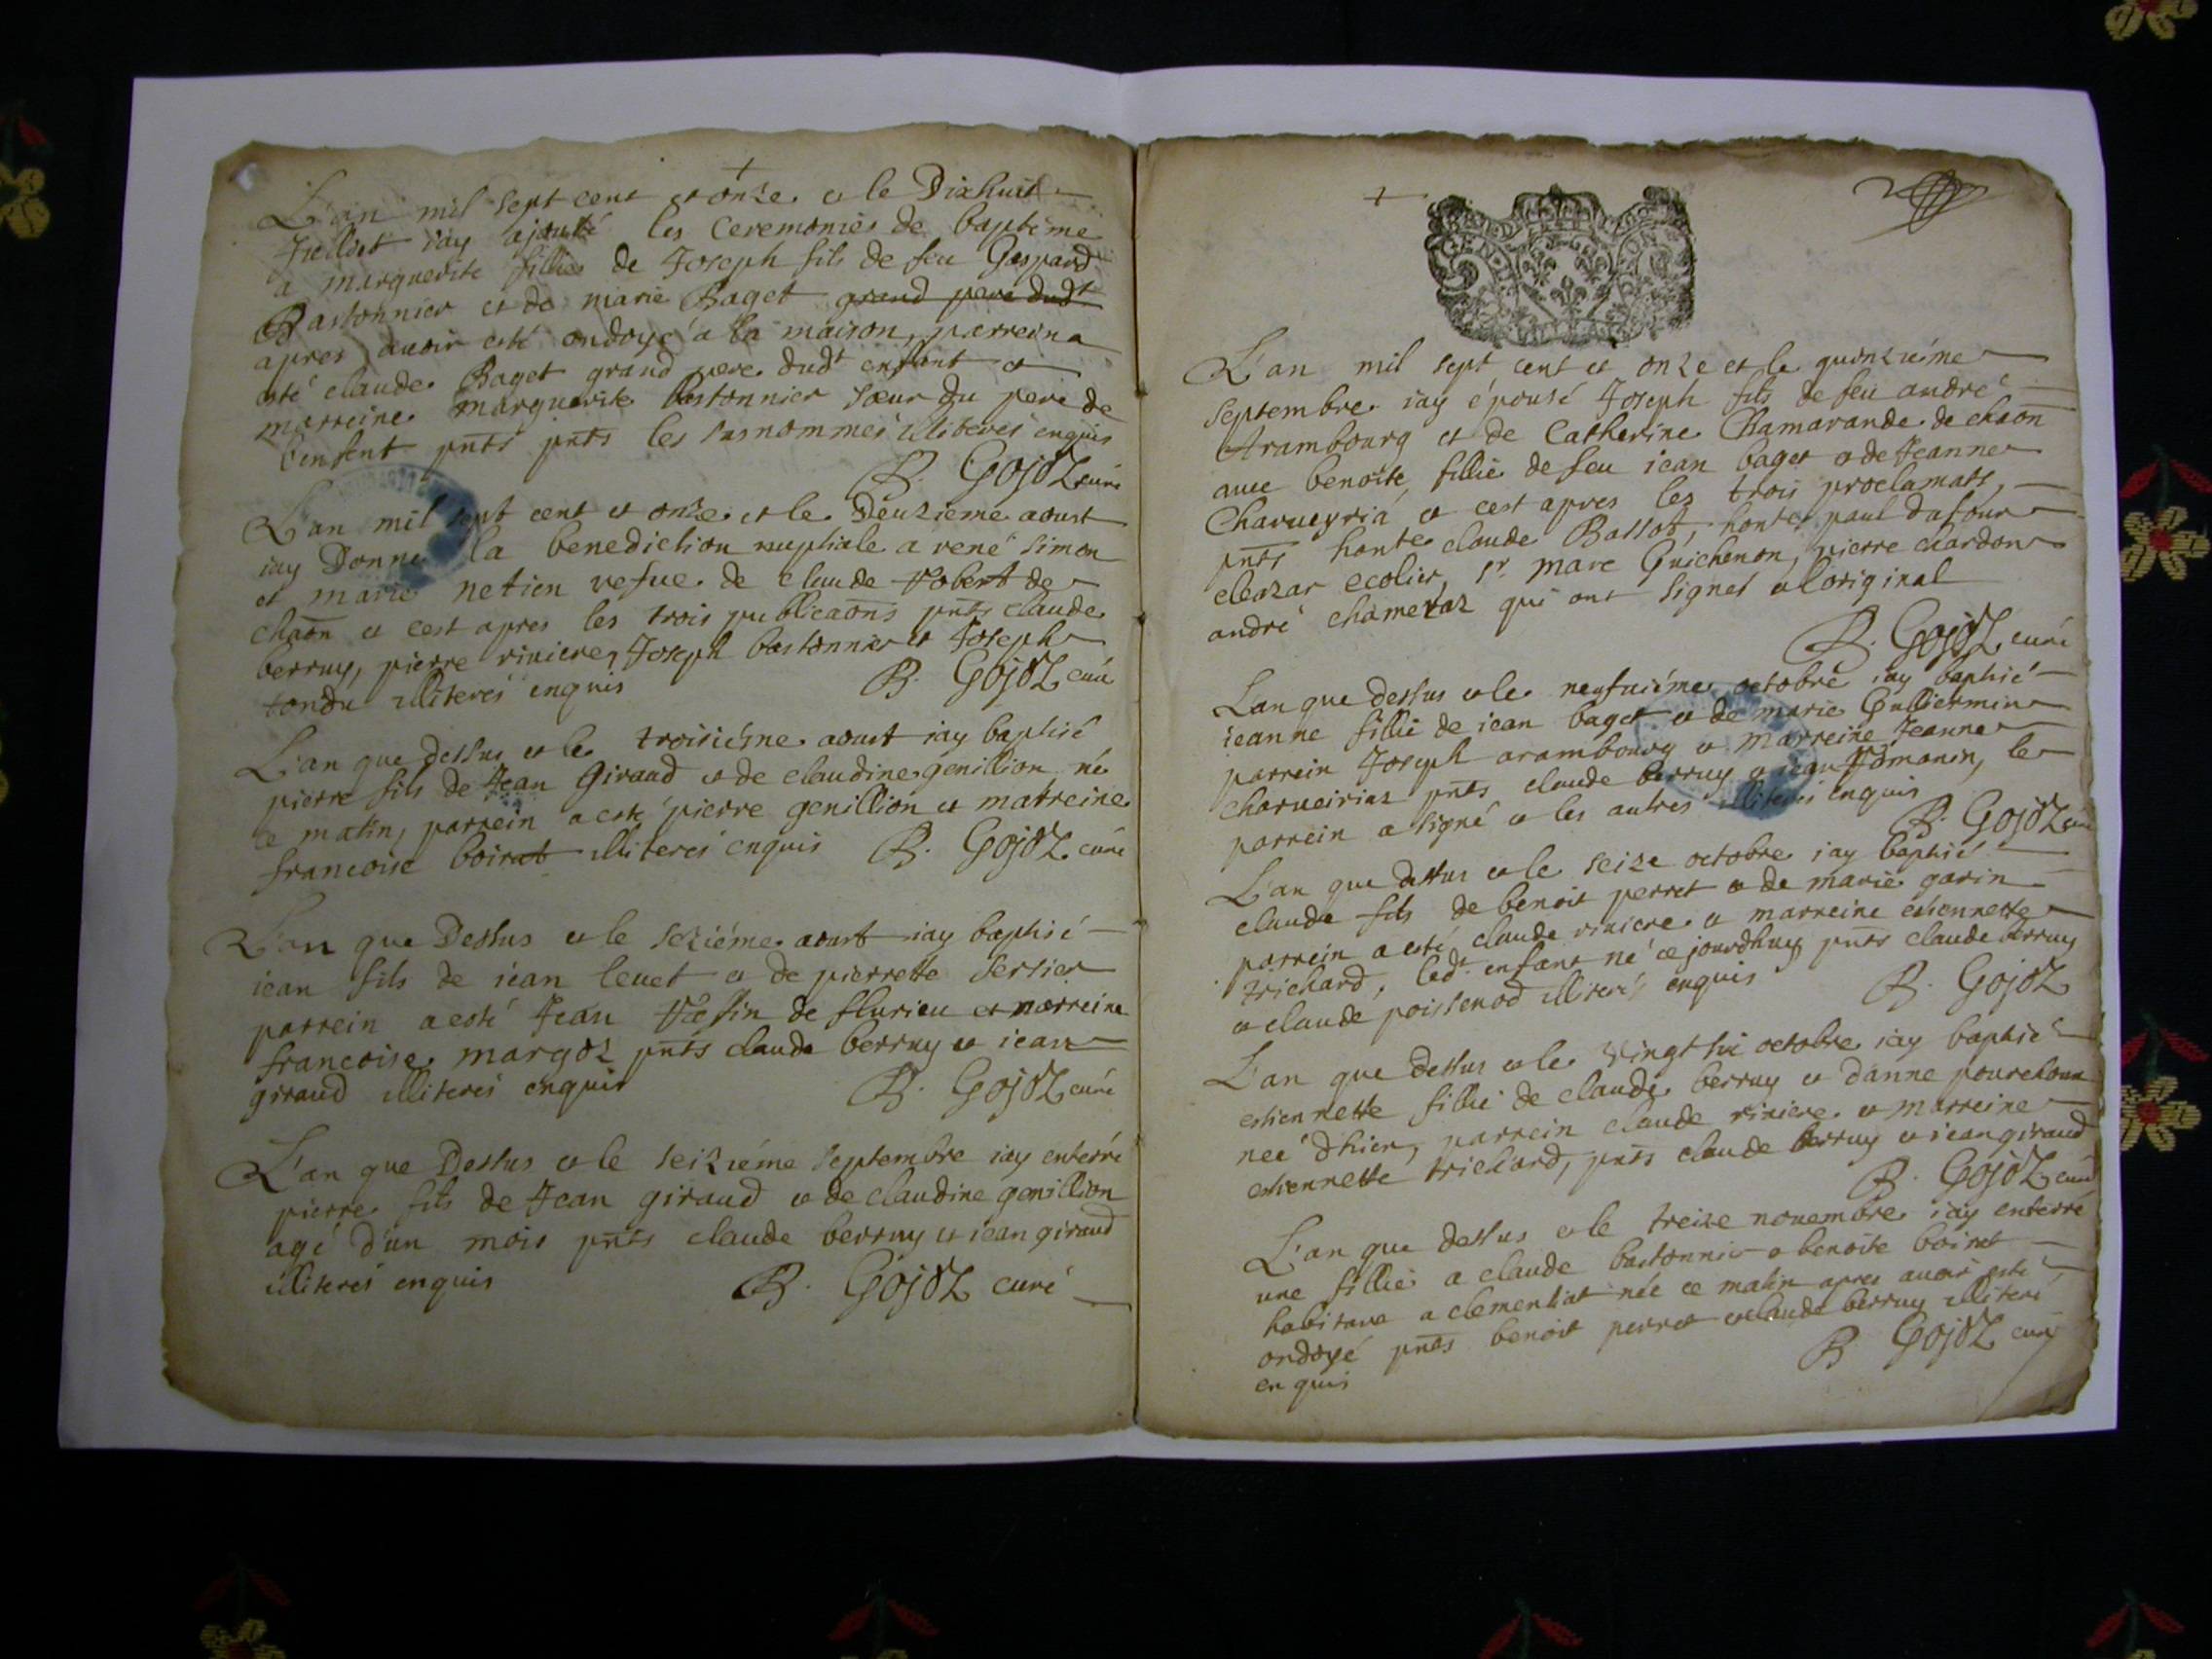 L'an mil sept cent et onze et le Dixhuit
Juillet iay ajouté les Ceremonies de baptême
a marguerite fillie de Joseph fils de feu Gaspard
Bastonnier et de marie Baget grand pere dudt
apres avoir esté ondoyé a la maison, parrein a
esté claude Baget grand pere dudt enfant et
marreine marguerite bastonnier sœur du pere de
l'enfent pnts pnts les susnommés illiterés enquis
B. Gojoz curé
L'an mil sept cent et onze et le Deuzieme aoust
iay Donné la benediction nuptiale a rené simon
et marie netien vefue de claude robert de
chaon et cest apres les trois publicaons pnts claude
berruy, pierre riviere, Joseph bastonnier et Joseph
tondu illiterés enquis B. Gojoz curé
L'an que dessus et le troisiéme aoust iay baptisé
pierre fils de Jean Giraud et de claudine genillion né
ce matin, parrein a esté pierre genillion et marreine
francoise boirat illiterés enquis B. Gojoz curé
L'an que Dessus et le seziéme aoust iay baptisé
iean fils de iean leuet et de pierrette sersier
parrein a esté Jean de flurieu et marreine
francoise margoz pnts claude berruy et iean
giraud illiterés enquis B. Gojoz curé
L'an que Dessus et le seiziéme septembre iay enterré
pierre fils de Jean giraud et de claudine genillion
agé d'un mois pnts claude berruy et iean giraud
illiterés enquis B. Gojoz curé
L'an mil sept cent et onze et le quinziéme
septembre iay épousé Joseph fils de feu andré
Arambourg et de Catherine Chamarande de chaon
auec benoite, fillie de feu iean baget et de Jeanne
Charueyria et cest apres les trois proclamats,
pnts honte claude Bassot, honte paul dufour
eleazar ecolier, sr marc Guichenon, pierre chardon
andré chameraz qui ont signet a loriginal
B. Gojoz curé
Lan que dessus et le neufuiéme octobre iay baptisé
ieanne fillie de iean baget et de marie Gulliermin
parrein Joseph arambourg et marreine Jeanne
charueirias pnts claude berruy et iean, le
parrein a signé et les autres illiterés enquis
B. Gojoz curé
L'an que dessus et le seize octobre iay baptisé
claude fils de benoit perret et de marie garin
parrein a esté claude riviere et marreine estiennette
trichard, ledt enfant né ce jourdhuy pnts claude berruy
et claude poissenod illiterés enquis B. Gojoz
L'an que dessus et le Vingt six octobre iay baptisé
estiennette fillie de claude berruy et danne
neé dhier, parrein claude riviere et marreine
estiennette trichard, pnts claude berruy et iean giraud
B. Gojoz curé
L'an que dessus et le treize nouembre iay enterré
une fillie a claude bastonnier et benoite boirat
habitans a clementiat née ce matin apres auoir esté
ondoyé pnts benoit perret et claude berruy illiteré
enquis B Gojoz curé